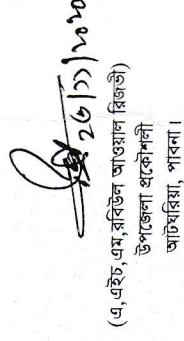 (এ,এইচ,এম,রবিউল আওয়াল রিজভী)
উপজেলা প্রকৌশলী
আটঘরিয়া, পাবনা।